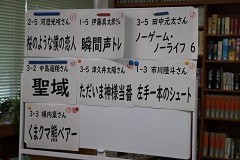 2-5 河澄光咲さん
桜のような僕の恋人
1-5 伊藤真太郎さん
瞬間声トレ
3-5 田中元太さん
ノーゲーム・
ノーライフ 6
3-2 中島遥翔さん
聖域
3-5 津久井太陽さん
ただいま神様当番
1-3 市川隆斗さん
左手一本のシュート
3-3 横内葉さん
くまクマ熊ベアー